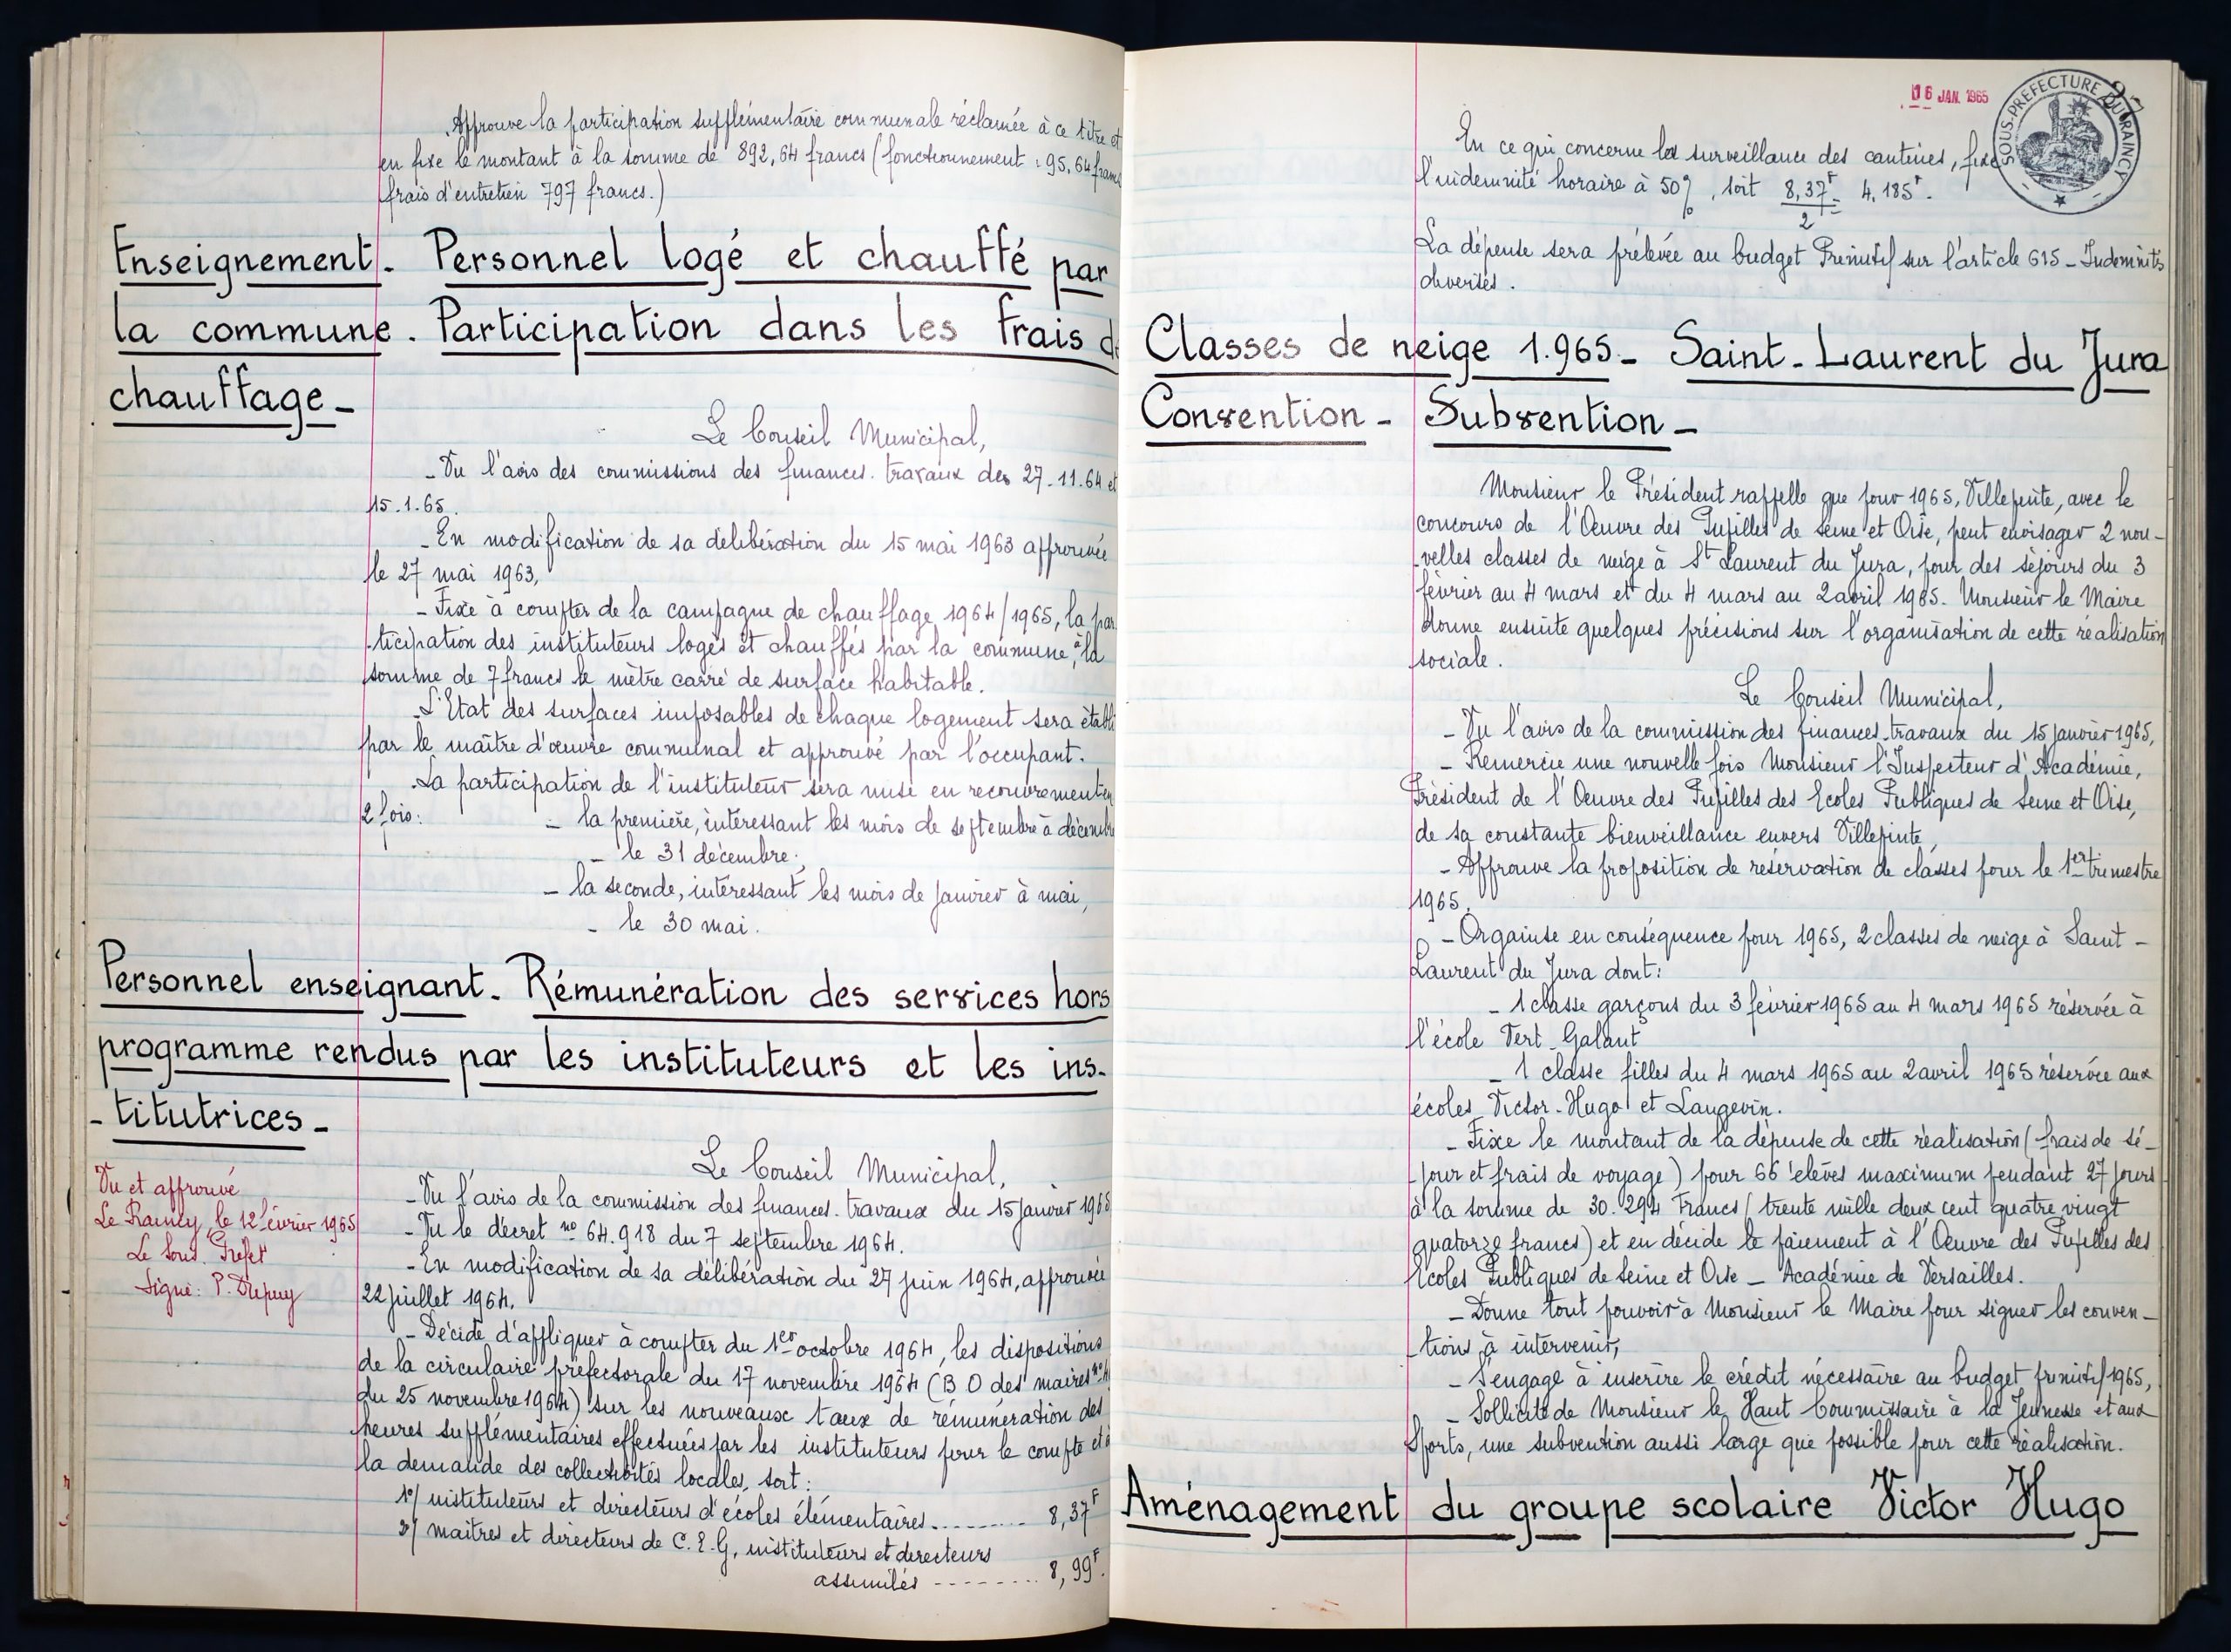 Approuve la participation supplémentaire communale réclamée à ce titre et
en fixe le montant à la somme de 892,64 francs (fonctionnement : 95,64 francs
frais d'entretien 797 francs.)
Enseignement. Personnel logé et chauffé par
la commune. Participation dans les frais de
chauffage_
Le Conseil Municipal,
_ Vu l'avis des commissions des finances. travaux des 27.11.64 et
15.1.65.
_ En modification de sa délibération du 15 mai 1963 approuvée
le 27 mai 1963,
_ Fixe à compter de la campagne de chauffage 1964/1965, la par
-ticipation des instituteurs logés et chauffés par la commune, à la
somme de 7 francs le mètre carré de surface habitable.
L'Etat des surfaces imposables de chaque logement sera établi
par le maître d'œuvre communal et approuvé par l'occupant.
La participation de l'instituteur sera mise en recouvrement en
2 fois: _ la première, intéressant les mois de septembre à décembre
_ le 31 décembre;
_ la seconde, intéressant les mois de janvier à mai,
_ le 30 mai.
Personnel enseignant. Rémunération des services hors
programme rendus par les instituteurs et les ins-
-titutrices_
Le Conseil Municipal,
Vu et approuvé
Le Raincy, le 12 février 1965
Le Sous. Préfet
Signé: P. Dupuy
_ Vu l'avis de la commission des finances. travaux du 15 janvier 1965
_ Vu le décret n° 64.918 du 7 septembre 1964.
_ En modification de sa délibération du 27 juin 1964, approuvée
22 juillet 1964,
_ Décide d'appliquer à compter du 1er octobre 1964, les dispositions
de la circulaire préfectorale du 17 novembre 1964 (B O des maires n°
du 25 novembre 1964) sur les nouveaux taux de rémunération des
heures supplémentaires effectuées par les instituteurs pour le compte et à
la demande des collectivités locales, soit:
1°/ instituteurs et directeurs d'écoles élémentaires.......... 8,37F
2°/ maîtres et directeurs de C.E.G, instituteurs et directeurs
assimilés --------- 8,99F.
16 JAN. 1965
SOUS-PREFECTURE DU RAINCY
En ce qui concerne la surveillance des cantines, fixe
l'indemnité horaire à 50%, soit 8,37F/2 = 4,185F.
La dépense sera prélevée au budget Primitif sur l'article 615_Indemnités
diverses.
Classes de neige 1.965_ Saint-Laurent du Jura
Convention_ Subvention_
Monsieur le Président rappelle que pour 1965, Villepinte, avec le
concours de l'Oeuvre des Pupilles de Seine et Oise, peut envisager 2 nou-
-velles classes de neige à St Laurent du Jura, pour des séjours du 3
février au 4 mars et du 4 mars au 2 avril 1965. Monsieur le Maire
donne ensuite quelques précisions sur l'organisation de cette réalisation
sociale.
Le Conseil Municipal,
_ Vu l'avis de la commission des finances-travaux du 15 janvier 1965,
_ Remercie une nouvelle fois Monsieur l'Inspecteur d'Académie,
Président de l'Oeuvre des Pupilles des Ecoles Publiques de Seine et Oise,
de sa constante bienveillance envers Villepinte,
_ Approuve la proposition de réservation de classes pour le 1er trimestre
1965.
_ Organise en conséquence pour 1965, 2 classes de neige à Saint-
Laurent du Jura dont:
_ 1 classe garçons du 3 février 1965 au 4 mars 1965 réservée à
l'école Vert-Galant
_ 1 classe filles du 4 mars 1965 au 2 avril 1965 réservée aux
écoles Victor-Hugo et Langevin.
_ Fixe le montant de la dépense de cette réalisation (frais de sé-
-jour et frais de voyage) pour 66 élèves maximum pendant 27 jours
à la somme de 30.294 Francs (trente mille deux cent quatre vingt
quatorze francs) et en décide le paiement à l'Oeuvre des Pupilles des
Ecoles Publiques de Seine et Oise_ Académie de Versailles.
_ Donne tout pouvoir à Monsieur le Maire pour signer les conven-
-tions à intervenir,
_ S'engage à inscrire le crédit nécessaire au budget primitif 1965,
_ Sollicite de Monsieur le Haut Commissaire à la Jeunesse et aux
Sports, une subvention aussi large que possible pour cette réalisation.
Aménagement du groupe scolaire Victor Hugo